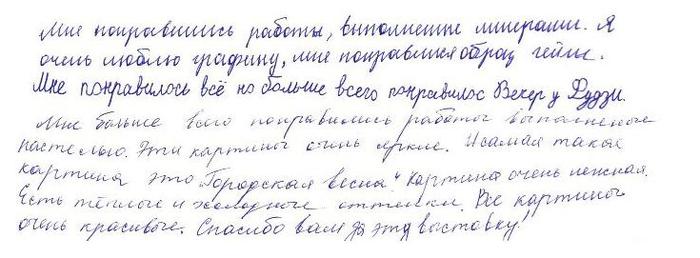 Мне понравились работы, выполнение линерами. Я
очень люблю графику, мне понравился образ гейши.
Мне понравилось всё но больше всего понравилос Вечер у Фудзи.
Мне больше всего понравились работы выполненые
пастелью. Эти картины очень яркие. И самая такая
картина это "Городская весна". Картина очень нежная.
Есть тёплые и холодные оттенки. Все картины
очень красивые. Спасибо вам за эту выставку!